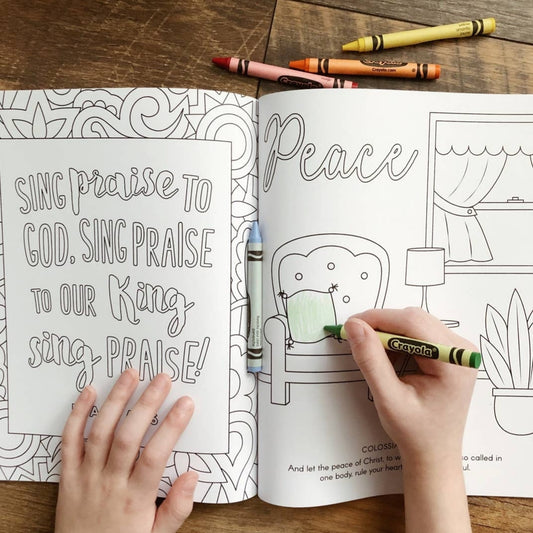 SING praise TO
GOD, SING PRAISE
TO OUR King
sing PRAISE!
Peace
COLOSSIA
And let the peace of Christ, to w so called in
one body, rule your heart ul.
Crayola
Crayola
Crayola